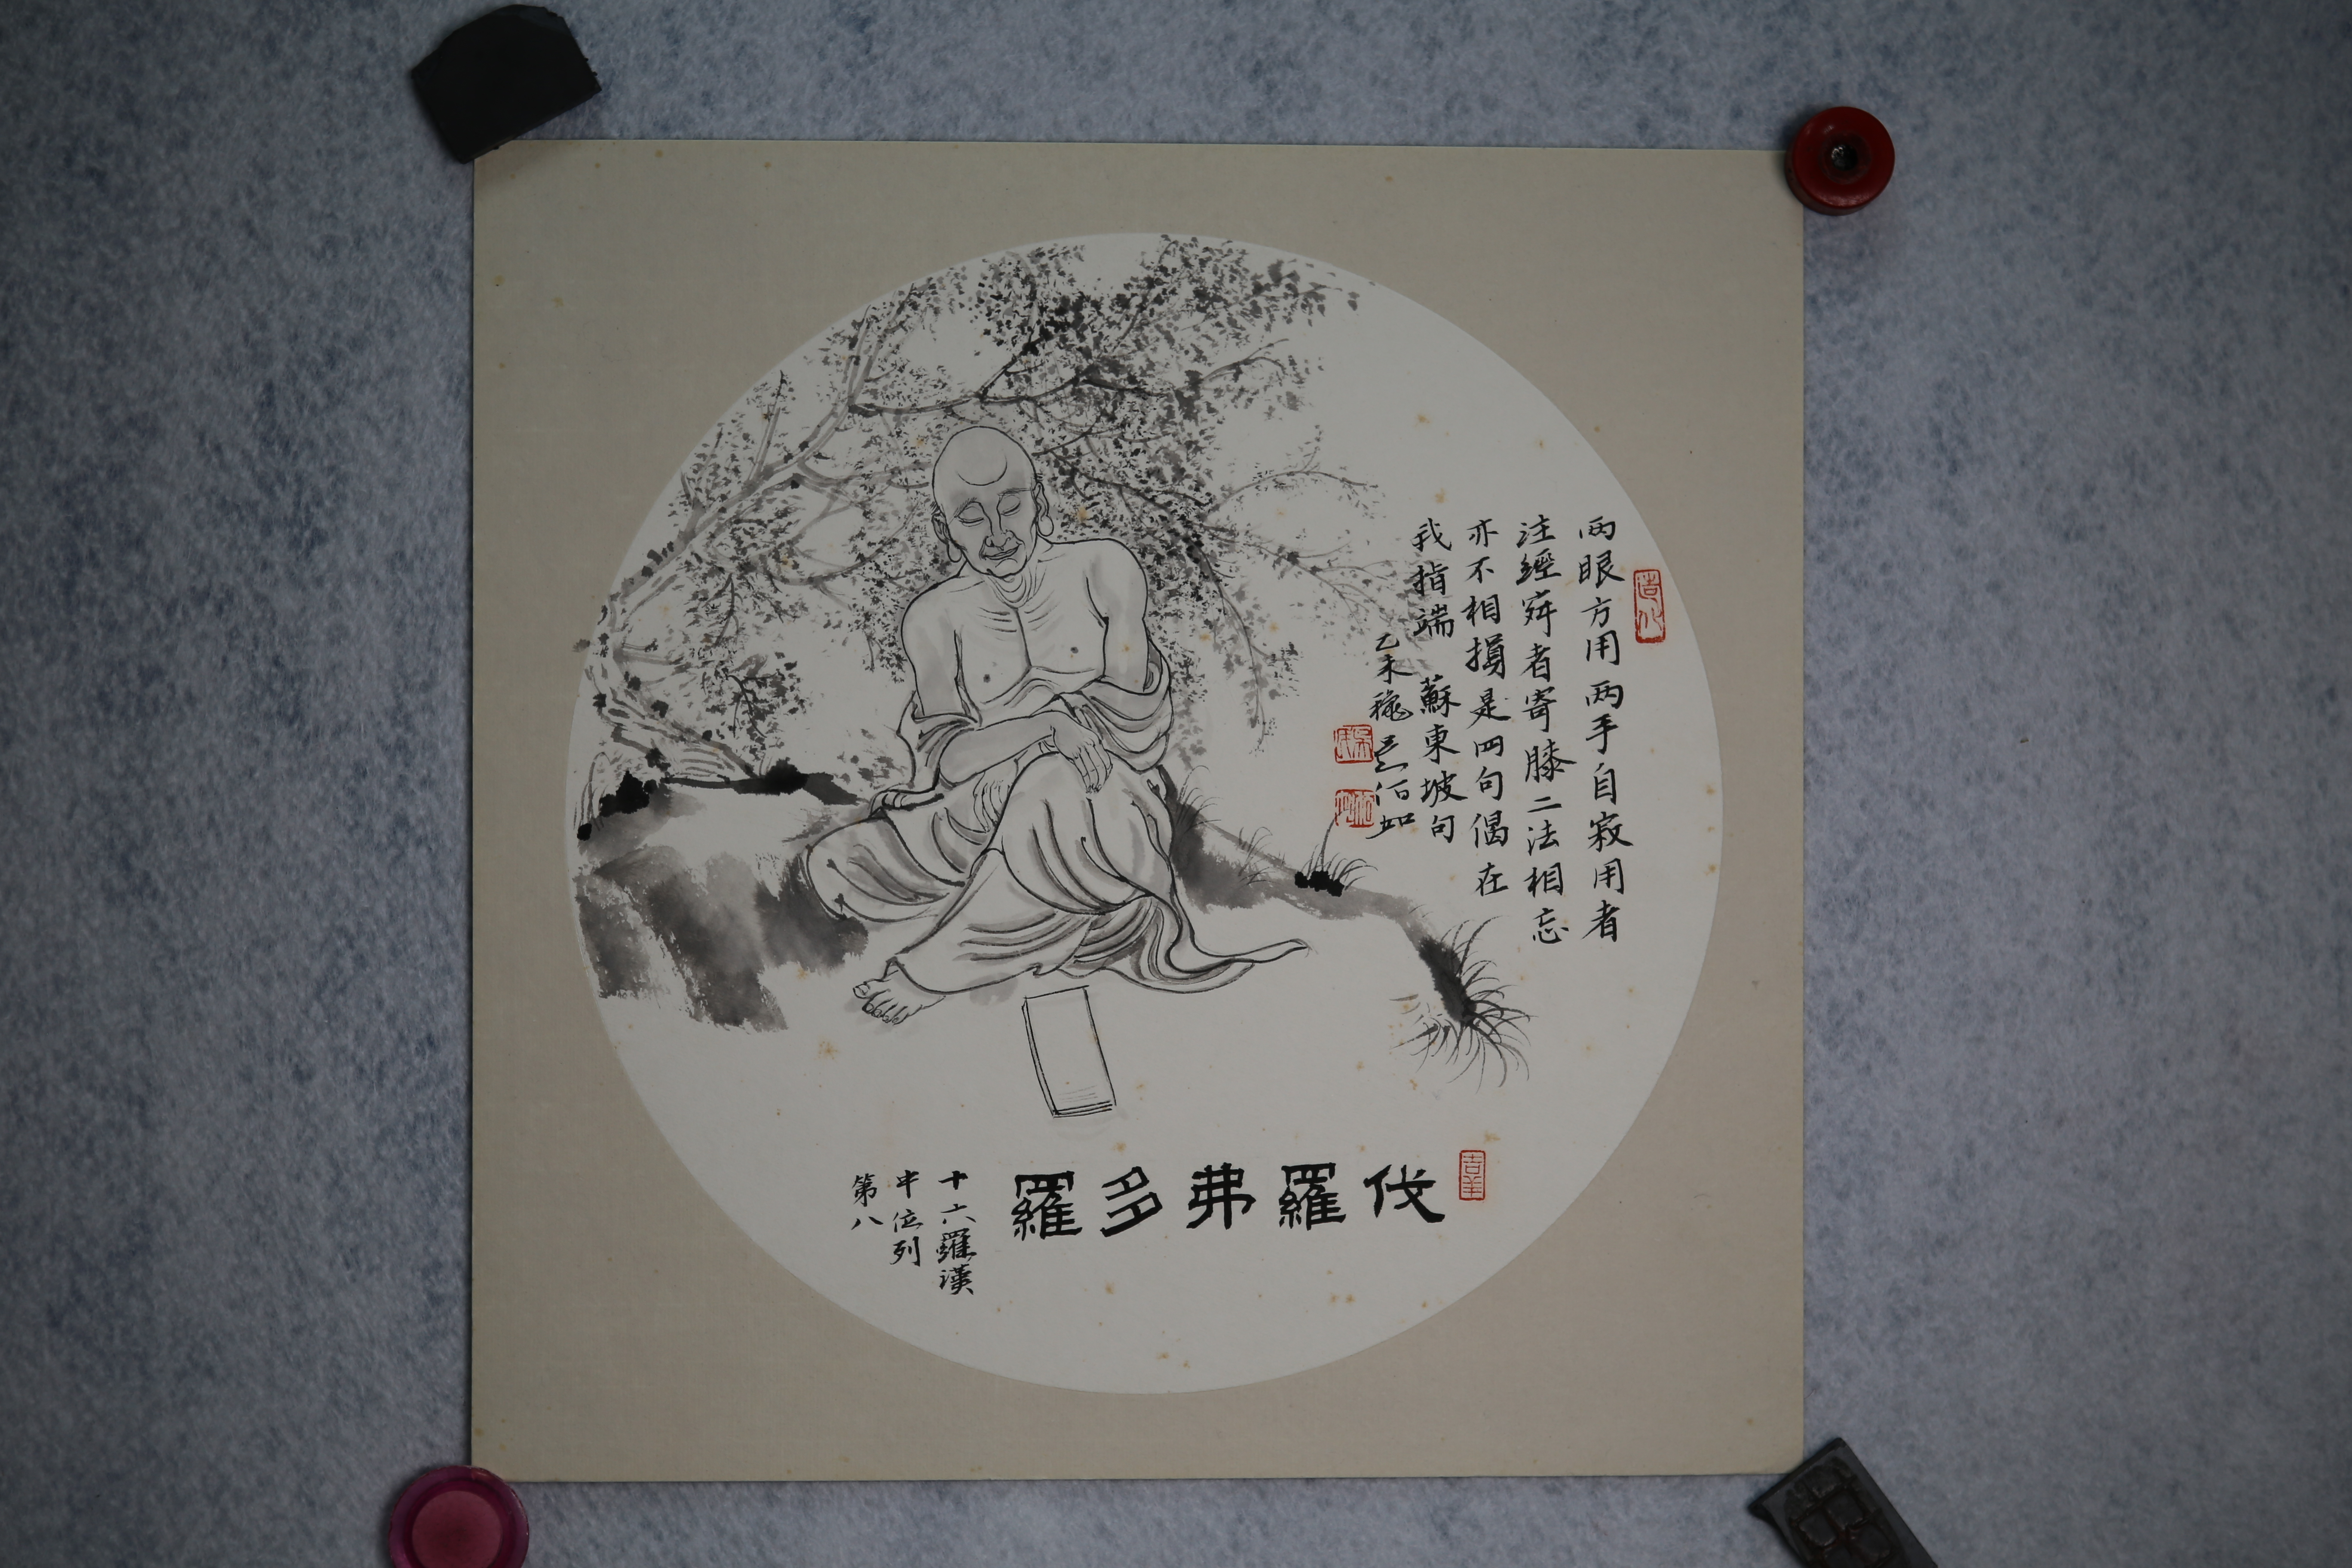 两眼方用两手自寂用者
注經寂者寄膝二法相忘
亦不相捐是四句偈在
我指端 蘇東坡句
乙未穐吴佰如
造化
吉羊
伐羅弗多羅
十六羅漢
中位列
第八